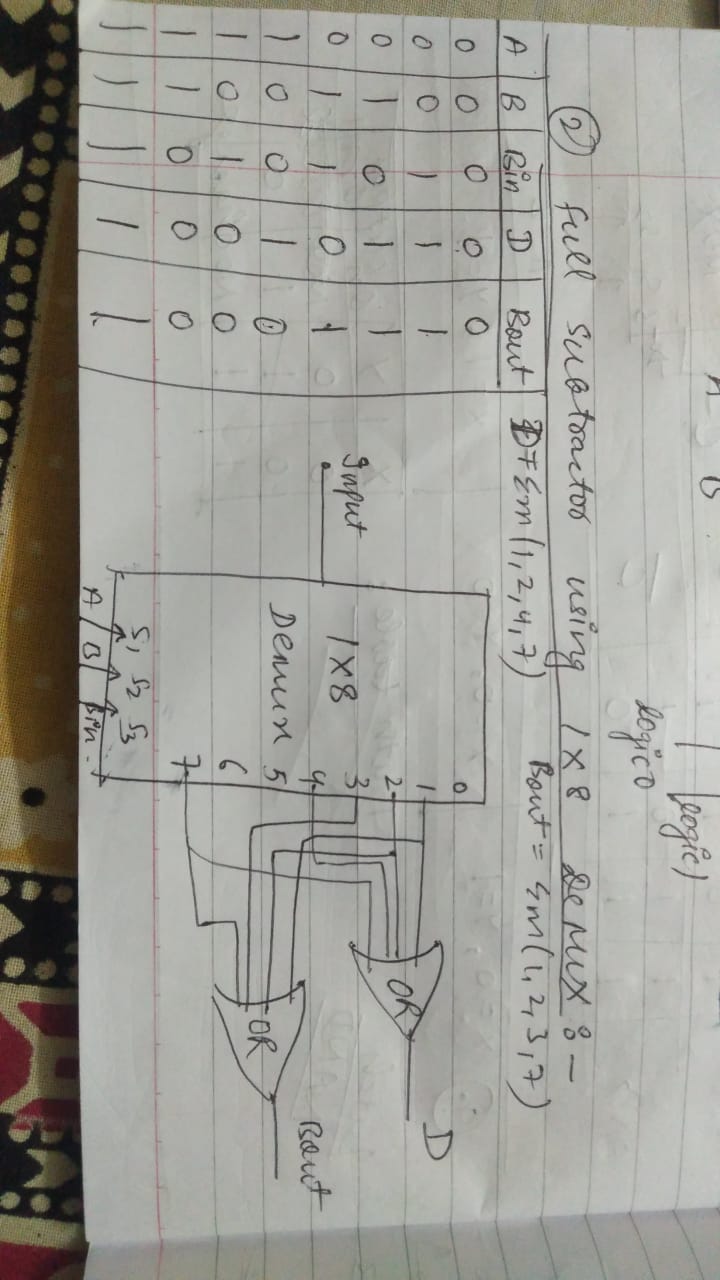 A B
logic1
logic0
② full subtractor using 1X8 Demux :-
A B Bin D Bout
0 0 0 0 0
0 0 1 1 1
0 1 0 1 1
0 1 1 0 1
1 0 0 1 0
1 0 1 0 0
1 1 0 0 0
1 1 1 1 1
D = Σm(1,2,4,7) Bout = Σm(1,2,3,7)
Input
1X8
Demux
0
1
2
3
4
5
6
7
S1 S2 S3
A B Bin
OR
D
OR
Bout